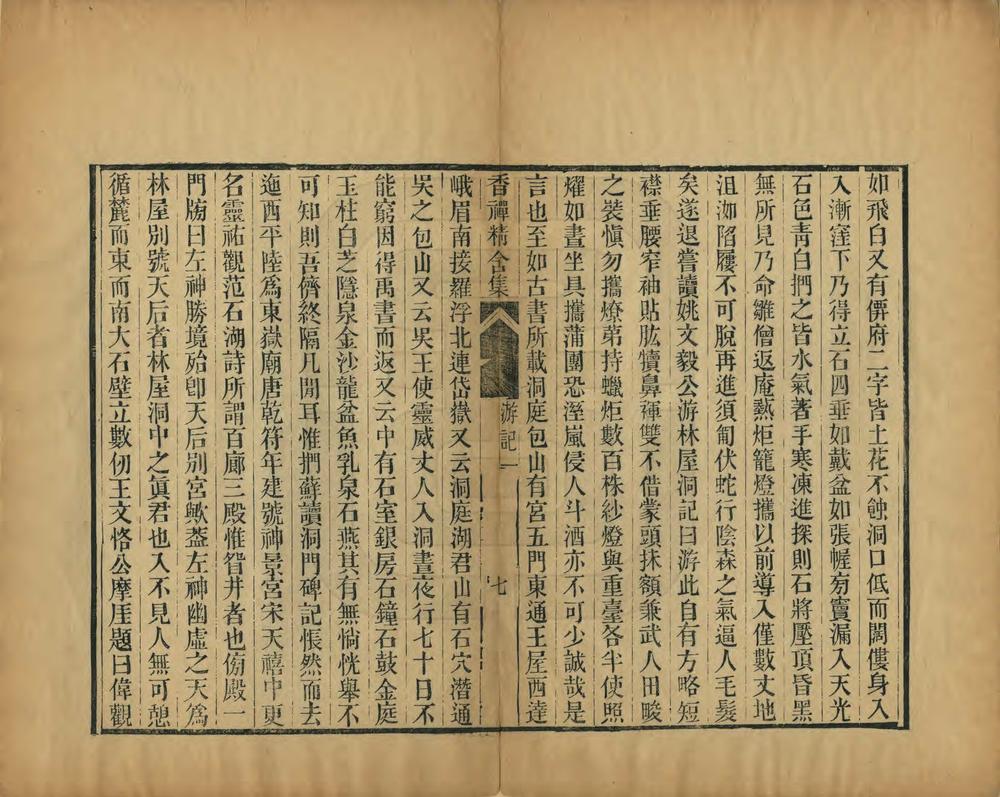 如飛白又有僲府二字皆土花不蝕洞口低而闊僂身入
入漸窪下乃得立石四垂如戴盆如張幄旁竇漏入天光
石色靑白捫之皆水氣著手寒凍進探則石將壓頂昏黑
無所見乃命雛僧返庵爇炬籠燈攜以前導入僅數丈地
沮洳陷屨不可脫再進須匍伏蛇行陰森之氣逼人毛髮
矣遂退嘗讀姚文毅公游林屋洞記曰游此自有方略短
襟垂腰窄袖貼肱犢鼻褌雙不借蒙頭抹額兼武人田畯
之裝愼勿攜燎苐持蠟炬數百株紗燈與重臺各半使照
燿如晝坐具攜蒲團恐溼嵐侵人斗酒亦不可少誠哉是
言也至如古書所載洞庭包山有宮五門東通王屋西達
香禪精舍集 游記一 七
峨眉南接羅浮北連岱嶽又云洞庭湖君山有石穴潛通
吳之包山又云吳王使靈威丈人入洞晝夜行七十日不
能窮因得禹書而返又云中有石室銀房石鐘石鼓金庭
玉柱白芝隱泉金沙龍盆魚乳泉石燕其有無惝恍舉不
可知則吾儕終隔凡閒耳惟捫蘚讀洞門碑記悵然而去
迤西平陸爲東嶽廟唐乾符年建號神景宮宋天禧中更
名靈祐觀范石湖詩所謂百廊三殿惟眢井者也傍殿一
門牓曰左神勝境殆卽天后別宮歟葢左神幽虛之天爲
林屋別號天后者林屋洞中之眞君也入不見人無可憩
循麓而東而南大石壁立數仞王文恪公摩厓題曰偉觀